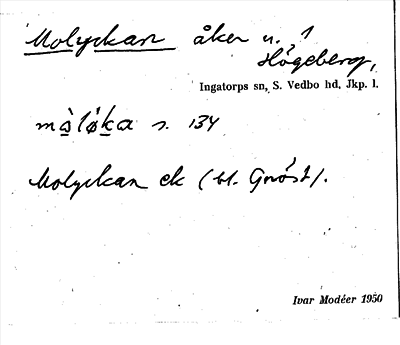 Molyckan åker n. 1
Högeberg,
Ingatorps sn, S. Vedbo hd, Jkp. l.
màlø̀ka s. 134
Molyckan ek (bl. Gnöst).
Ivar Modéer 1950